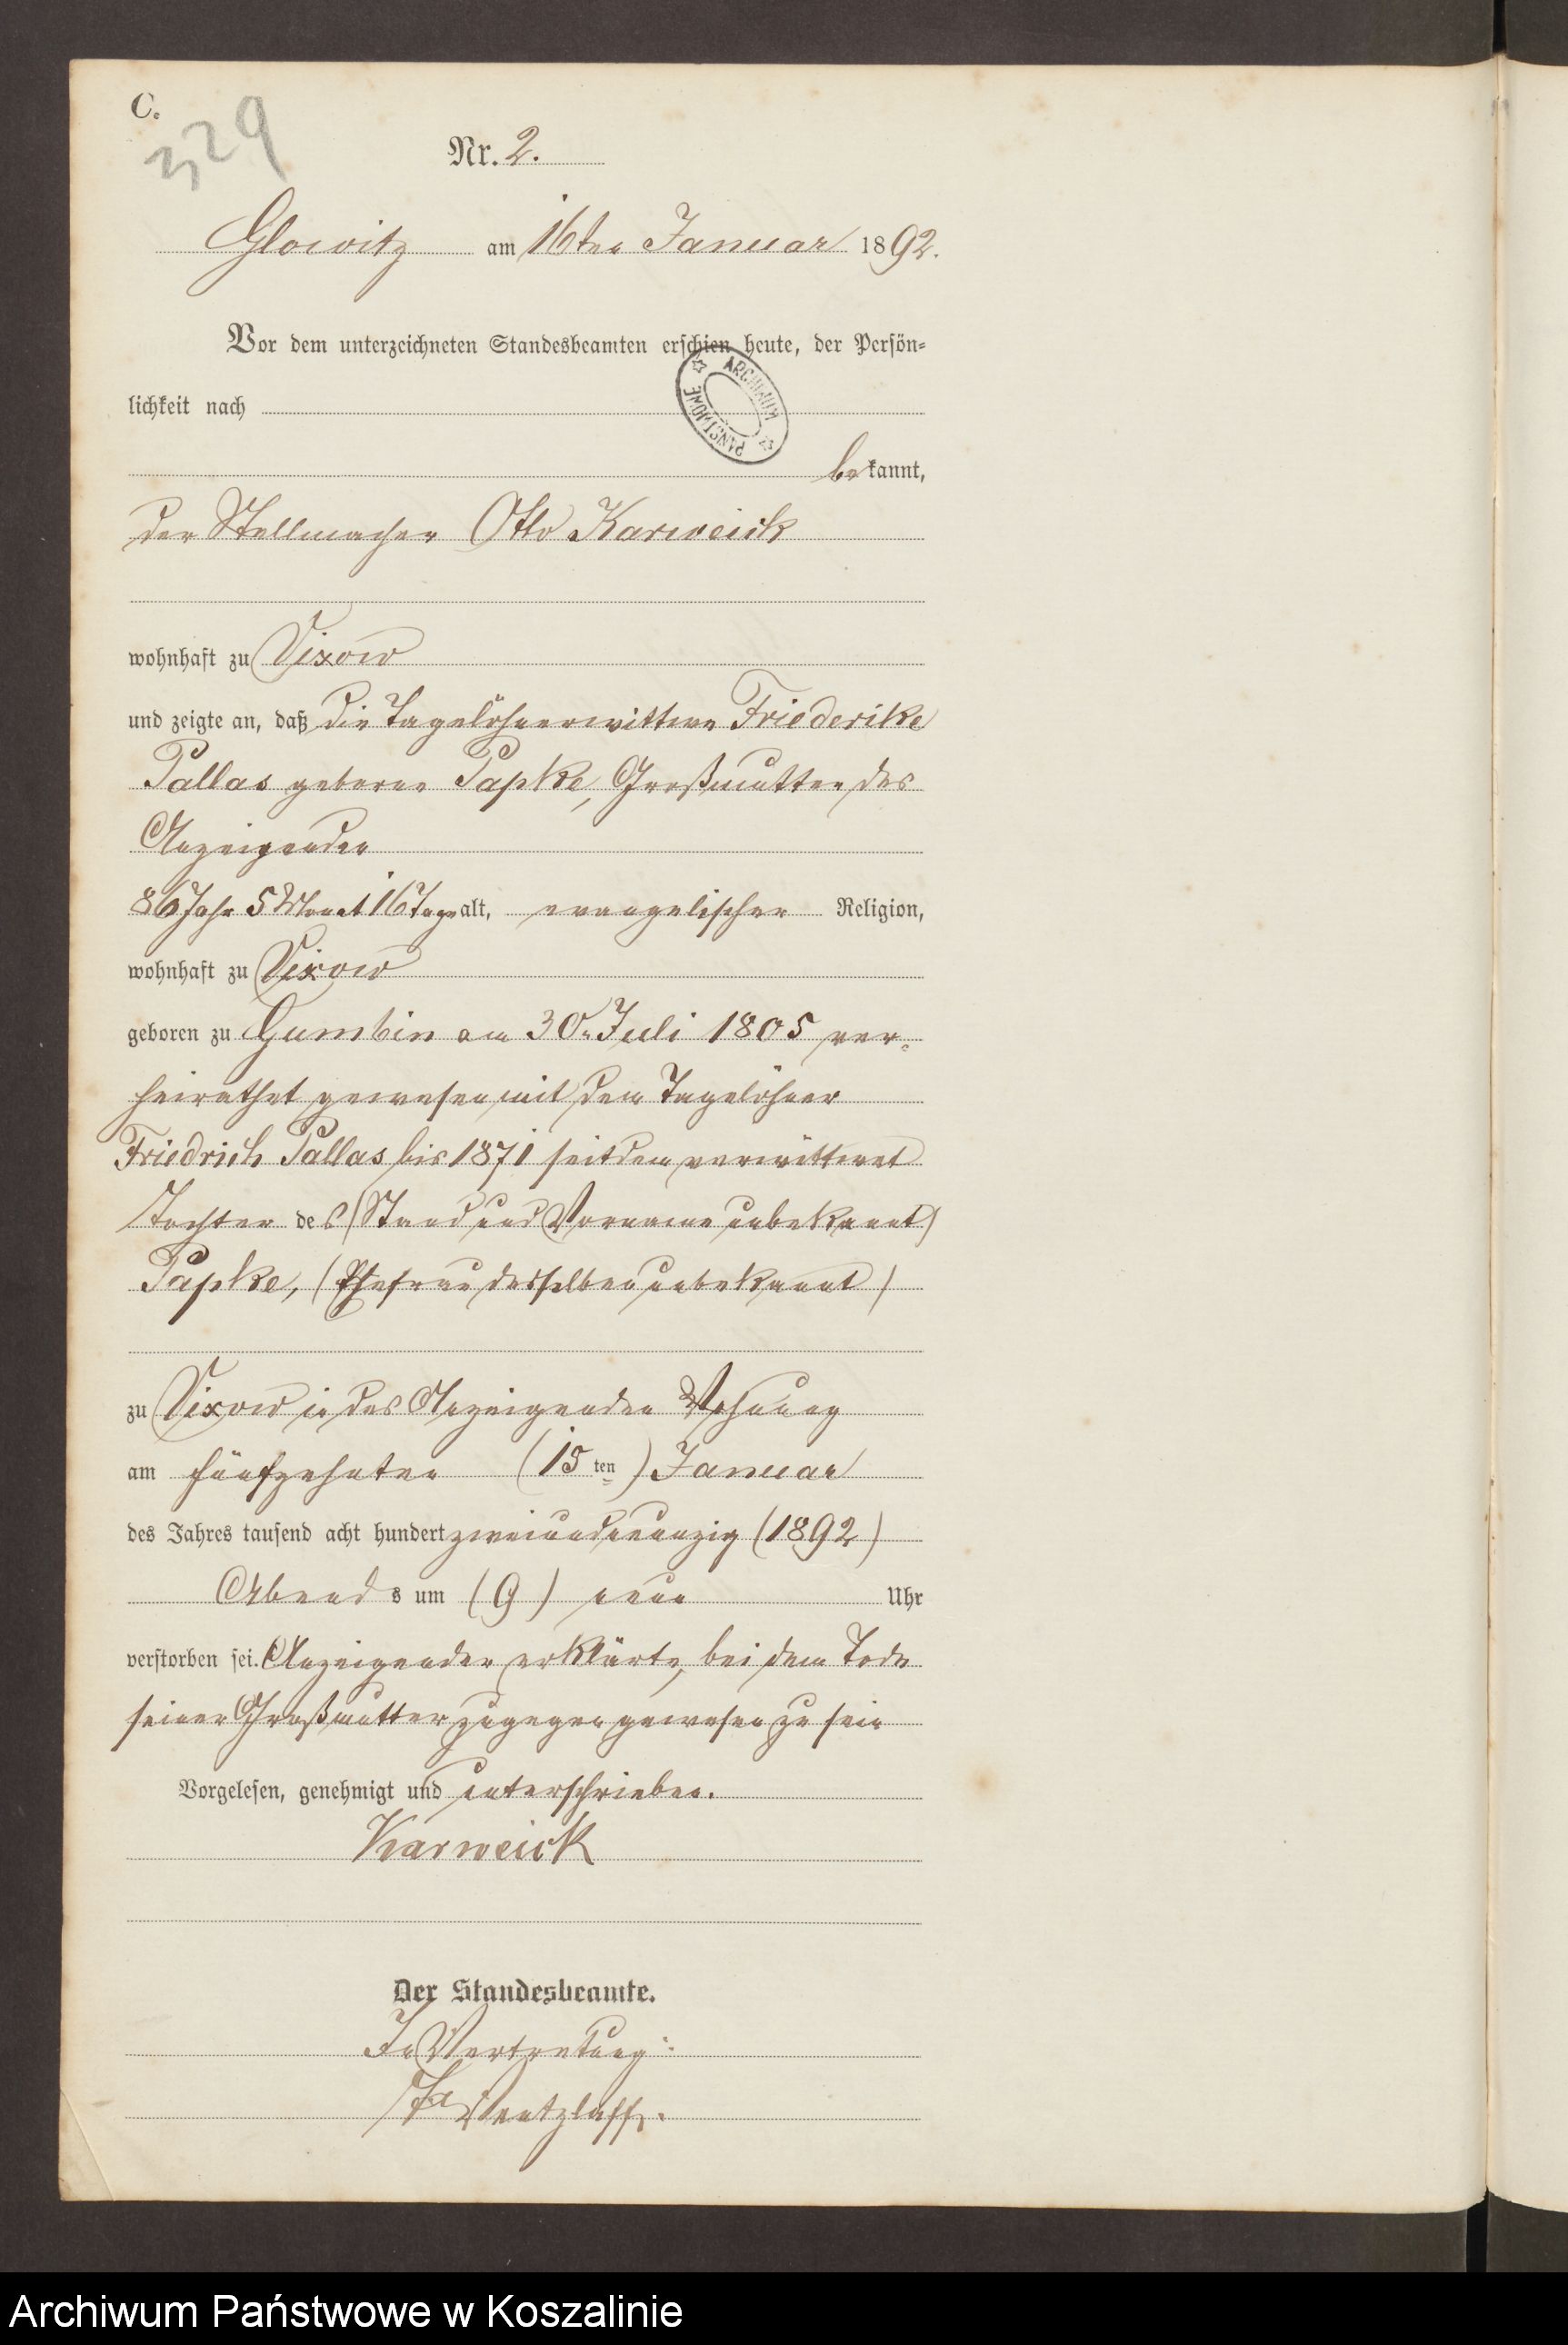 C.
329
Nr. 2.
Glowitz am 16ten Januar 1892.
Vor dem unterzeichneten Standesbeamten erschien heute, der Persön-
lichkeit nach
ARCHIWUM PAŃSTWOWE
bekannt,
der Stellmacher Otto Karweick
wohnhaft zu Vixow
und zeigte an, daß die Tagelöhnerwittwe Friederike
Pallas geborne Papke, Großmutter des
Anzeigenden
86 Jahr 5 Monat 16 Tage alt, evangelischer Religion,
wohnhaft zu Vixow
geboren zu Gumbin am 30. Juli 1805 ver-
heirathet gewesen mit dem Tagelöhner
Friedrich Pallas bis 1871 seitdem verwittwet
Tochter des (Stand und Vorname unbekannt)
Papke, (Ehefrau desselben unbekannt)
zu Vixow in des Anzeigenden Wohnung
am fünfzehnten (15ten) Januar
des Jahres tausend acht hundert zweiundneunzig (1892)
Abends um (9) neun Uhr
verstorben sei. Anzeigender erklärte, bei dem Tode
seiner Großmutter zugegen gewesen zu sein
Vorgelesen, genehmigt und unterschrieben.
Karweick
Der Standesbeamte.
In Vertretung:
Ventzlaff.
Archiwum Państwowe w Koszalinie